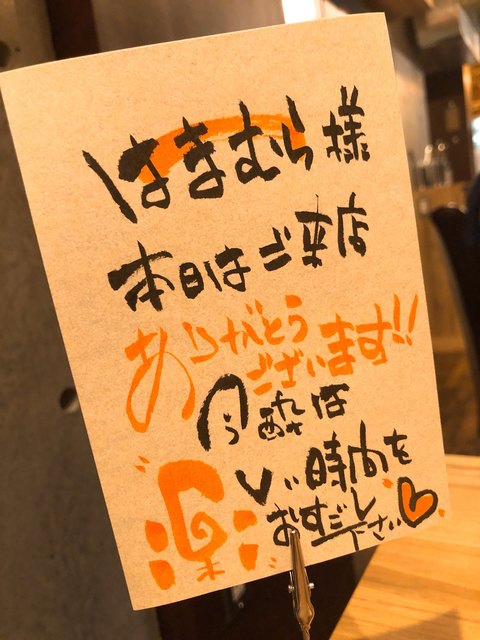 はまむら様
本日はご来店
ありがとう
ございます!!
今酔は
楽しい時間を
おすごし
下さい